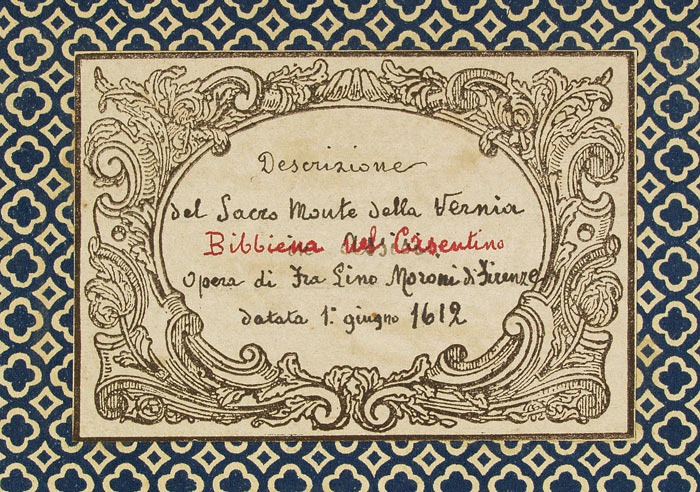 Descrizione
del Sacro Monte della Vernia
Bibbiena nel Casentino
Opera di Fra Lino Moroni di Firenze
datata 1° giugno 1612